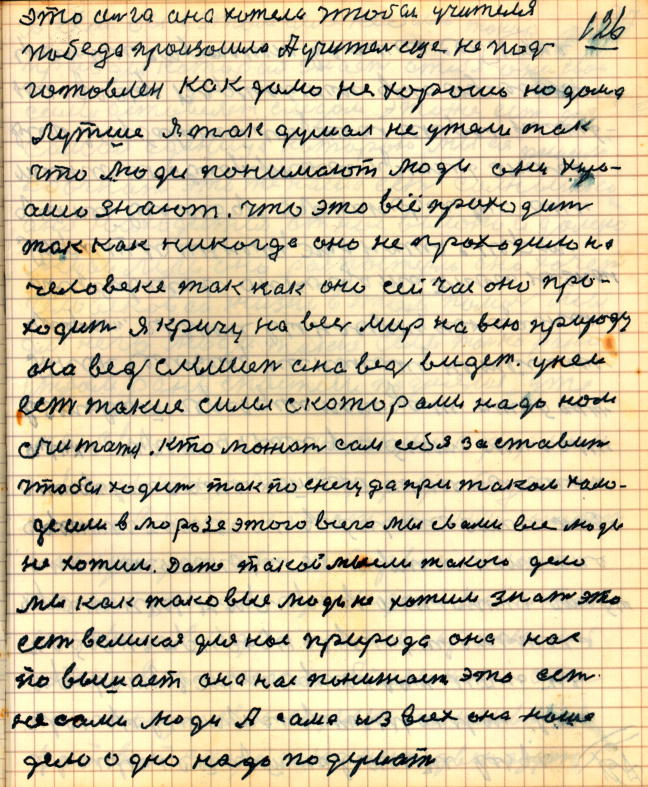 это сига она хотела чтобы учителя
126
победа произошла А учител еще не под
готовлен как дома не хорошо но дома
лутше я так думал не ужели так
что люди понимают люди они хоро-
ашо знают. что это всё проходит
так как никогда оно не проходило на
человеке так как оно сейчас оно про-
ходит я кричу на вес мир на всю природу
она вед слышит она вед видет. у неи
ест такие силы с которами надо нам
считатя. кто можат сам себя заставит
чтобы ходит так по снегу да при таком хало-
де или в морозе этого всего мы свами все люди
не хотим. Даже такой мысли такого дело
мы как таковые люди не хотим знат это
ест великая для нас природа она нас
по вышает она нас понижает это ест
не сами люди А сама из всех она наше
дело одно надо подержат